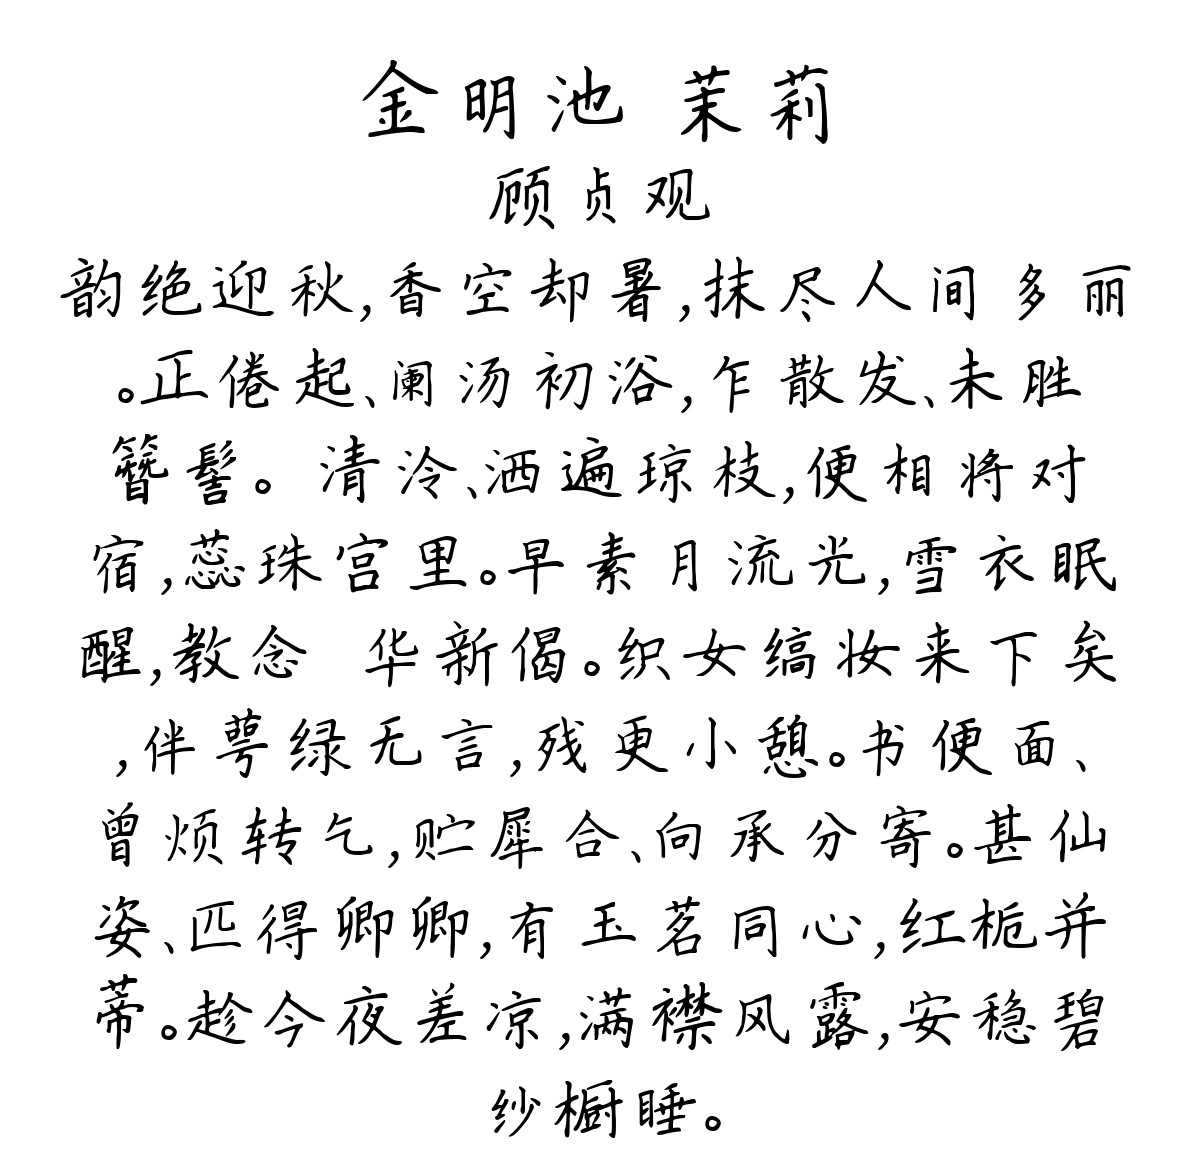 金明池 茉莉
顾贞观
韵绝迎秋,香空却暑,抹尽人间多丽
。正倦起、阑汤初浴,乍散发、未胜
簪髻。清泠、洒遍琼枝,便相将对
宿,蕊珠宫里。早素月流光,雪衣眠
醒,教念 华新偈。织女缟妆来下矣
,伴萼绿无言,残更小憩。书便面、
曾烦转乞,贮犀合、向承分寄。甚仙
姿、匹得卿卿,有玉茗同心,红栀并
蒂。趁今夜差凉,满襟风露,安稳碧
纱橱睡。